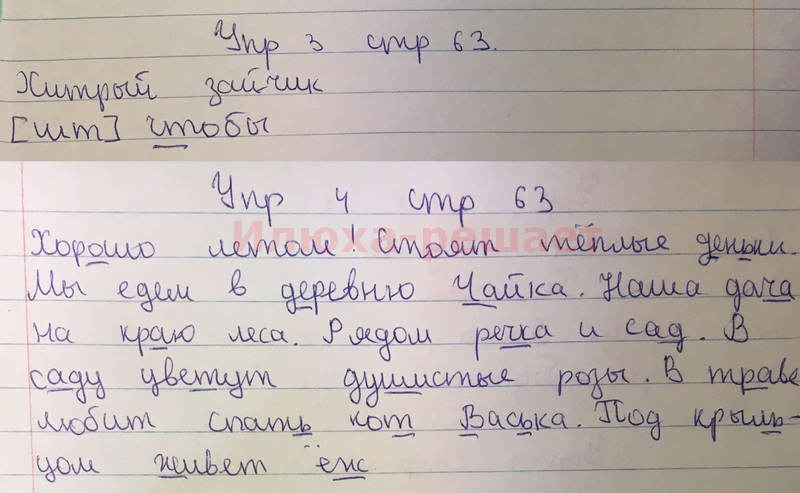 Упр 3 стр 63.
Хитрый зайчик
[шт] чтобы
Упр 4 стр 63
Илюха-решает
Хорошо летом! Стоят тёплые деньки.
Мы едем в деревню Чайка. Наша дача
на краю леса. Рядом речка и сад. В
саду цветут душистые розы. В траве
любит спать кот Васька. Под крыль-
цом живет ёж